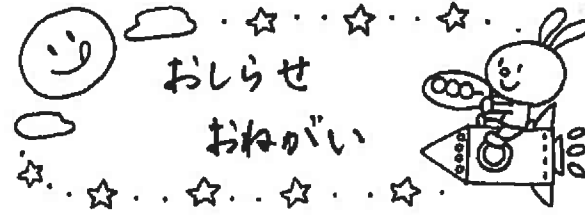 おしらせ
おねがい